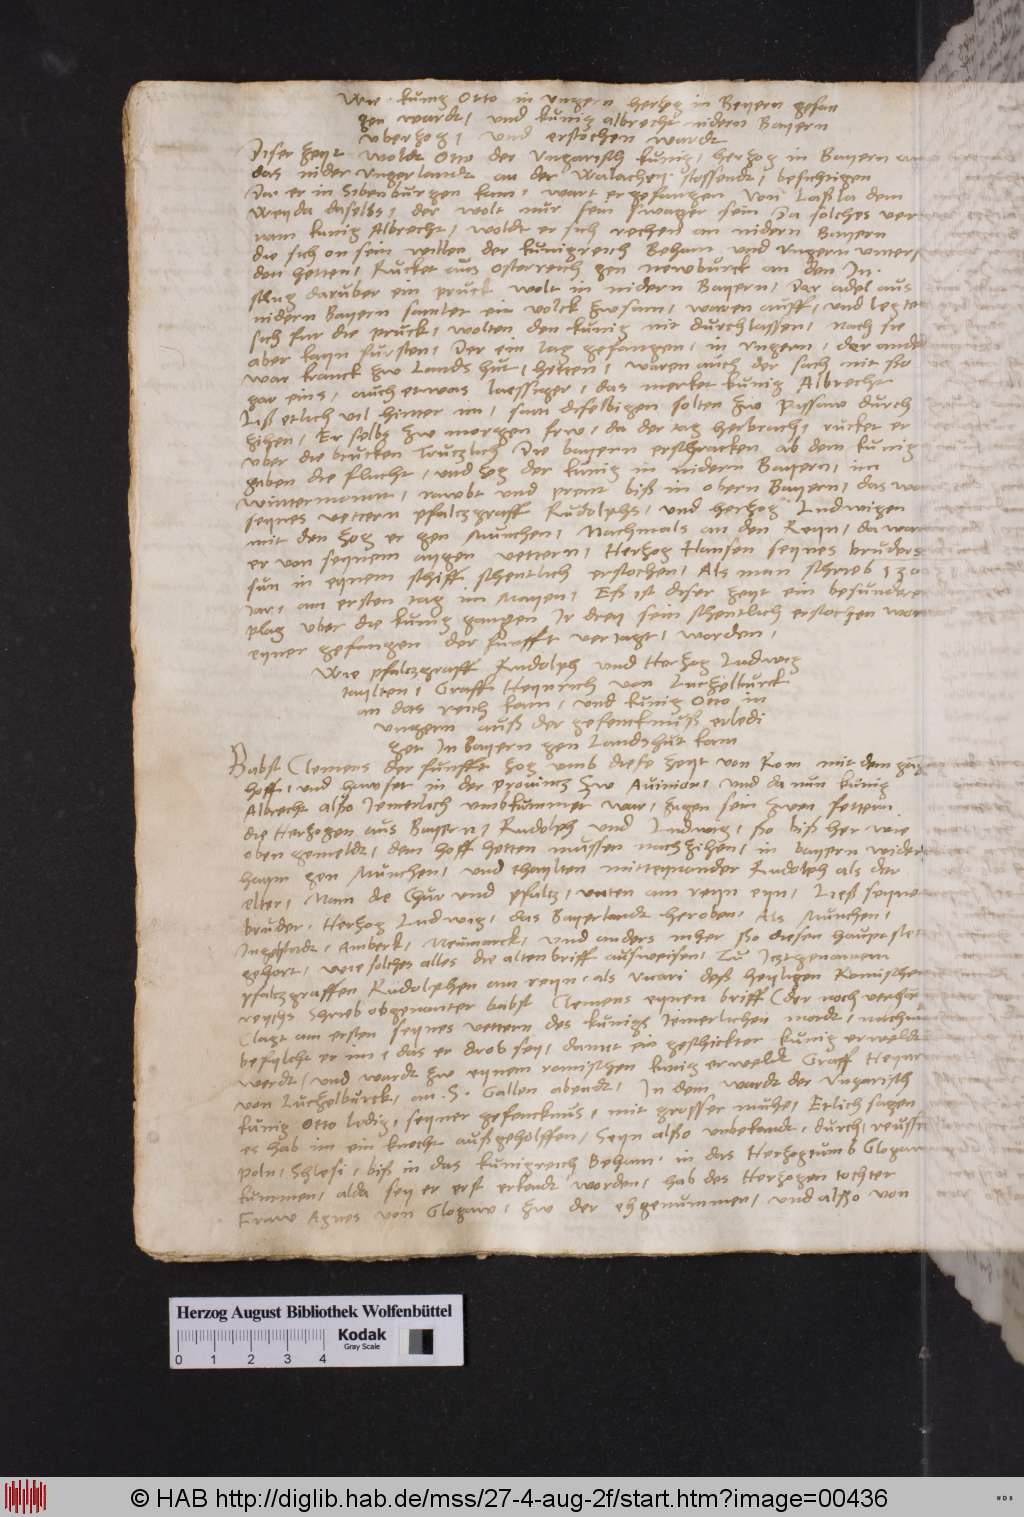 Wie kunig Otto in vngern hertzog in Beyern gefan
gen wardt, und kunig albrecht nidern Bayern
vberzog, und erstochen wardt
Diser zeyt woldt Otto der Vngarisch kunig, herzog in Bayern
das nider Vngerlandt an der Walachey stossendt, besichtigen
Da er in Sibenburgen kam, wart er gefangen von Lasla dem
Weyda daselbs, der wolt nur sein swager sein Da solches ver
nam kunig Albrecht, woldt er sich rechen an nidern Bayern
die sich on sein willen der kunigreich Beham und Vngern vnters
den hetten, Rucket aus Osterreich gen newburck an den In.
slug daruber ein pruck wolt in nidern Bayern, Der adel aus
nidern Bayern samlet ein volck zwsam, waren auff, und legten
sich fur die pruck, wolten den kunig nit durchlassen, nach sie
aber kayn fursten, Der ein lag gefangen, in vngern, der ander
war kranck zw Landshut, hetten, waren auch der sach nit sso
gar eins, auch etwas laessiger, das mercket kunig Albrecht
Liß etlich vil hinter im, sam diselbigen solten zw Passaw durch
zihen, Er selbs zw morgen frw, da der tag herbrach, rucket er
vber die brucken Truczlich Die bayern erschracken ab dem kunig
gaben die flucht, und zog der kunig in nidern Bayern, im
wintermonat, rawbt und prent biß in obern Bayern, das war
seynes vettern pfalczgraff Rudolphs, und herzog Ludwigen
mit den zog er gen Munchen, Nachmals an den Reyn, da war
er von seynem aygen vettern, Herzog Hansen seynes bruders
sun in eynem schiff schentlich erstochen, Als man schrieb 130
Jar, am ersten tag im Mayen, Eß ist diser zeyt ein besundere
plag vber die kunig gangen Ir drey sein schentlich erstochen wor
eyner gefangen der funfft veriagt, worden,
Wie pfalczgraff Rudolph und Herzog Ludwig
taylten, Graff Heynrich von Luczelburck
an das reich kam, und kunig Otto in
vngern auß der gefencknuß erledi
get In Bayern gen Landshut kam
Babst Clemens der funfft zog vmb diese zeyt von Rom mit dem
hoff, und hawset in der provintz zw Avinion, und da nun kunig
Albrecht alßo Iemerlich vmbkummer war, zugen sein zwen fettern
die Herzogen aus Bayern, Rudolph und Ludwig, sso biß her wie
oben gemeldt, dem hoff hetten mussen nachzihen, in bayern wider
haym gen Munchen, und thaylten mitteynander Rudolph als der
elter, Nam die Chur und pfaltz, vnten am reyn eyn, Ließ seynem
bruder, Herzog Ludwig, das Bayerlandt heroben, Als Munchen,
Ingolstadt, Amberk, Neumarck, und anders mher sso diesen haupt stet
gehort, wie solches alles die alten briff ausweisen, Zu Iztgenantem
pfalczgraffen Rudolphen am reyn, als Vicari deß heyligen Romischen
reychs Schrieb obgenanter babst Clemens eynen briff (der noch verhan
Clagt am ersten seynes vettern des kunigs Iemerlichen mordt, nachm
befylcht er im, das er drob sey, damit ein geschickter kunig erweldt
werdt, und wardt zw eynem romischen kunig erweldt Graff Heynr
von Luczelburck, an .S. Gallen abendt, In dem wardt der Vngarisch
kunig Otto ledig, seyner gefencknus, mit grosser muhe, Etlich sagen
es hab im ein knecht außgeholffen, Seyn alßo unbekandt, durch, reussn
Poln, Schlesi, biß in das kunigreich Beham, in das Herzogtumb Glogaw
kummen, alda sey er erst erkandt worden, hab des Herzogen tochter
Fraw Agnes von Glogaw, zw der eh genummen, und alßo von
Herzog August Bibliothek Wolfenbüttel
Kodak
Gray Scale
0 1 2 3 4
© HAB http://diglib.hab.de/mss/27-4-aug-2f/start.htm?image=00436